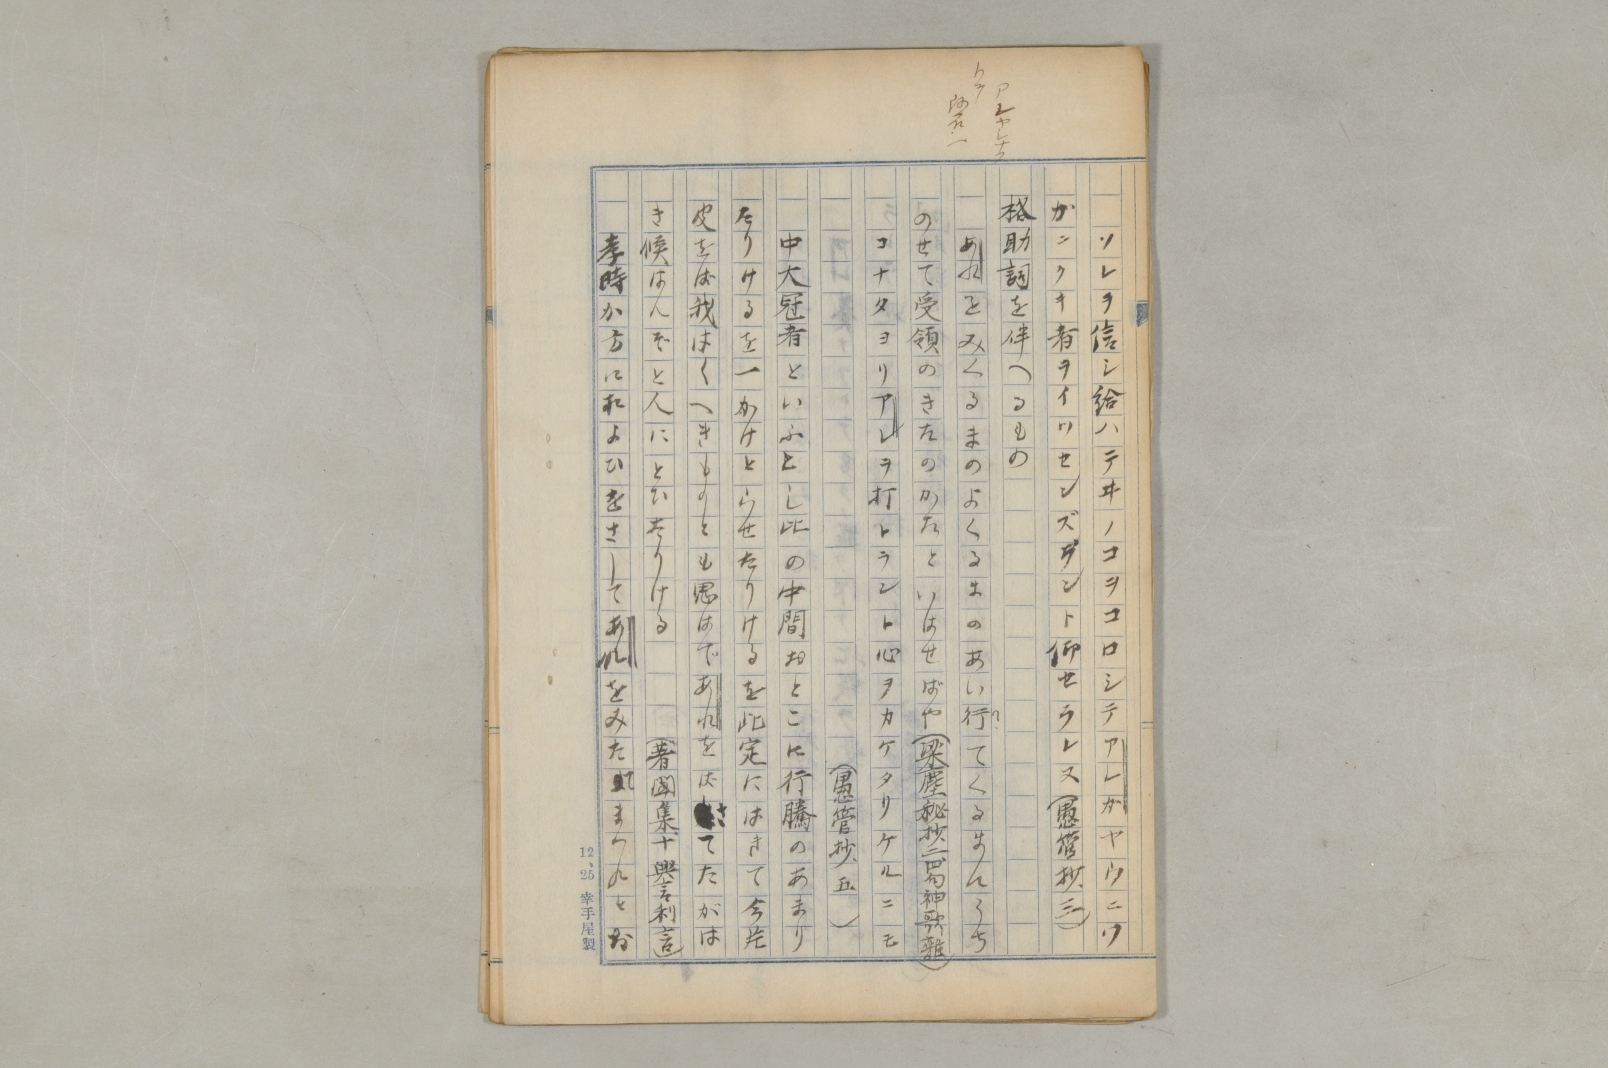 ソレヲ信シ給ハテヰノコヲコロシテアレガヤウニワ
カニクキ者ヲイワセンズゾント仰セラレヌ(愚管抄三)
格助詞を伴へるもの
あれをみくるまのよくるまのあい行てくるまんうち
のせて受領のきたのかたといはせばや(梁塵秘抄二四句神歌雑)
コナタヨリアレヲ打トラント心ヲカケタリケルニモ
(愚管抄五)
中大冠者といふとし此の中間おとこに行騰のあまり
たりけるを一かけとらせたりけるを此定にはきて今片
皮をば我はくへきものとも思はであれをばさてたがは
き候はんぞと人にとひたりける
(著聞集十興言利言)
孝時か方におよひをさしてあれをみたまつれと
12、25 幸手屋製